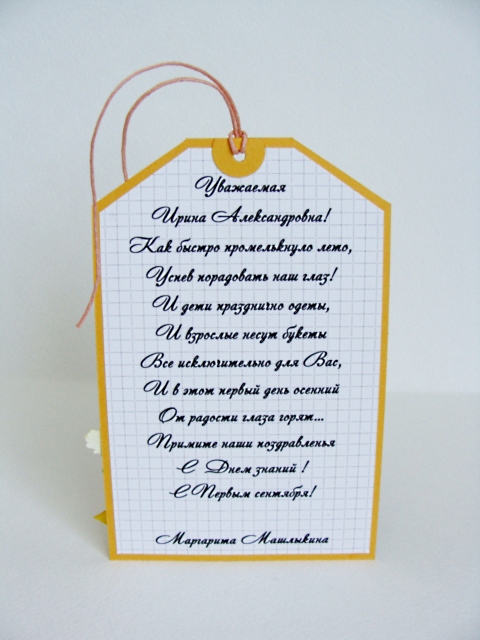 Уважаемая
Ирина Александровна!
Как быстро промелькнуло лето,
Успев порадовать наш глаз!
И дети празднично одеты,
И взрослые несут букеты
Все исключительно для Вас,
И в этот первый день осенний
От радости глаза горят...
Примите наши поздравленья
С Днем знаний !
С Первым сентября!
Маргарита Машлыкина